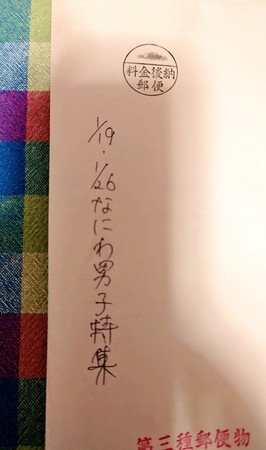 料金後納
郵便
1/19・1/26 なにわ男子特集
第三種郵便物